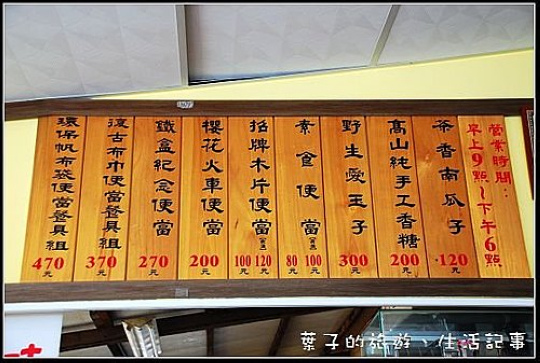 營業時間：
早上9點～下午6點
茶香南瓜子
120元
高山純手工香糖
200元
野生愛玉子
300元
素食便當
80 100元
招牌木片便當
100 120元
櫻花火車便當
200元
鐵盒紀念便當
270元
復古布巾便當餐具組
370元
環保帆布袋便當餐具組
470元
葉子的旅遊、生活記事